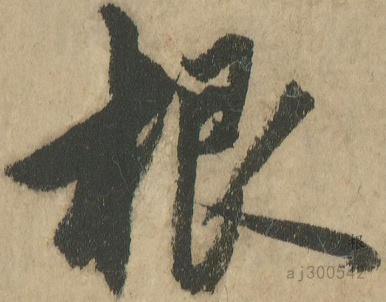 根
aj300542